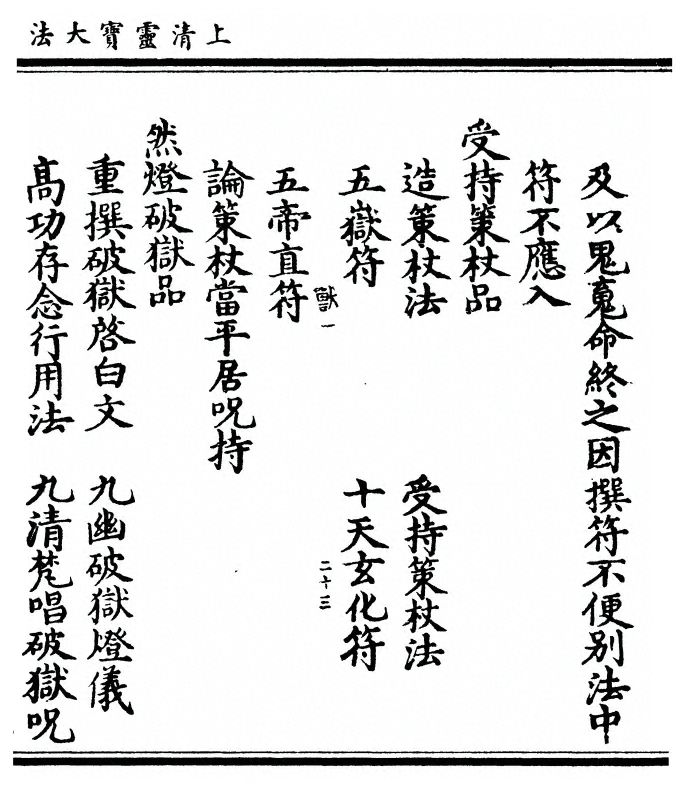 上清靈寶大法
及以鬼魂命終之因撰符不便別法中
符不應入
受持策杖品
造策杖法 受持策杖法
五嶽符 十天玄化符
獸一 二十三
五帝直符
論策杖當平居呪持
然燈破獄品
重撰破獄啓白文 九幽破獄燈儀
高功存念行用法 九清梵唱破獄呪